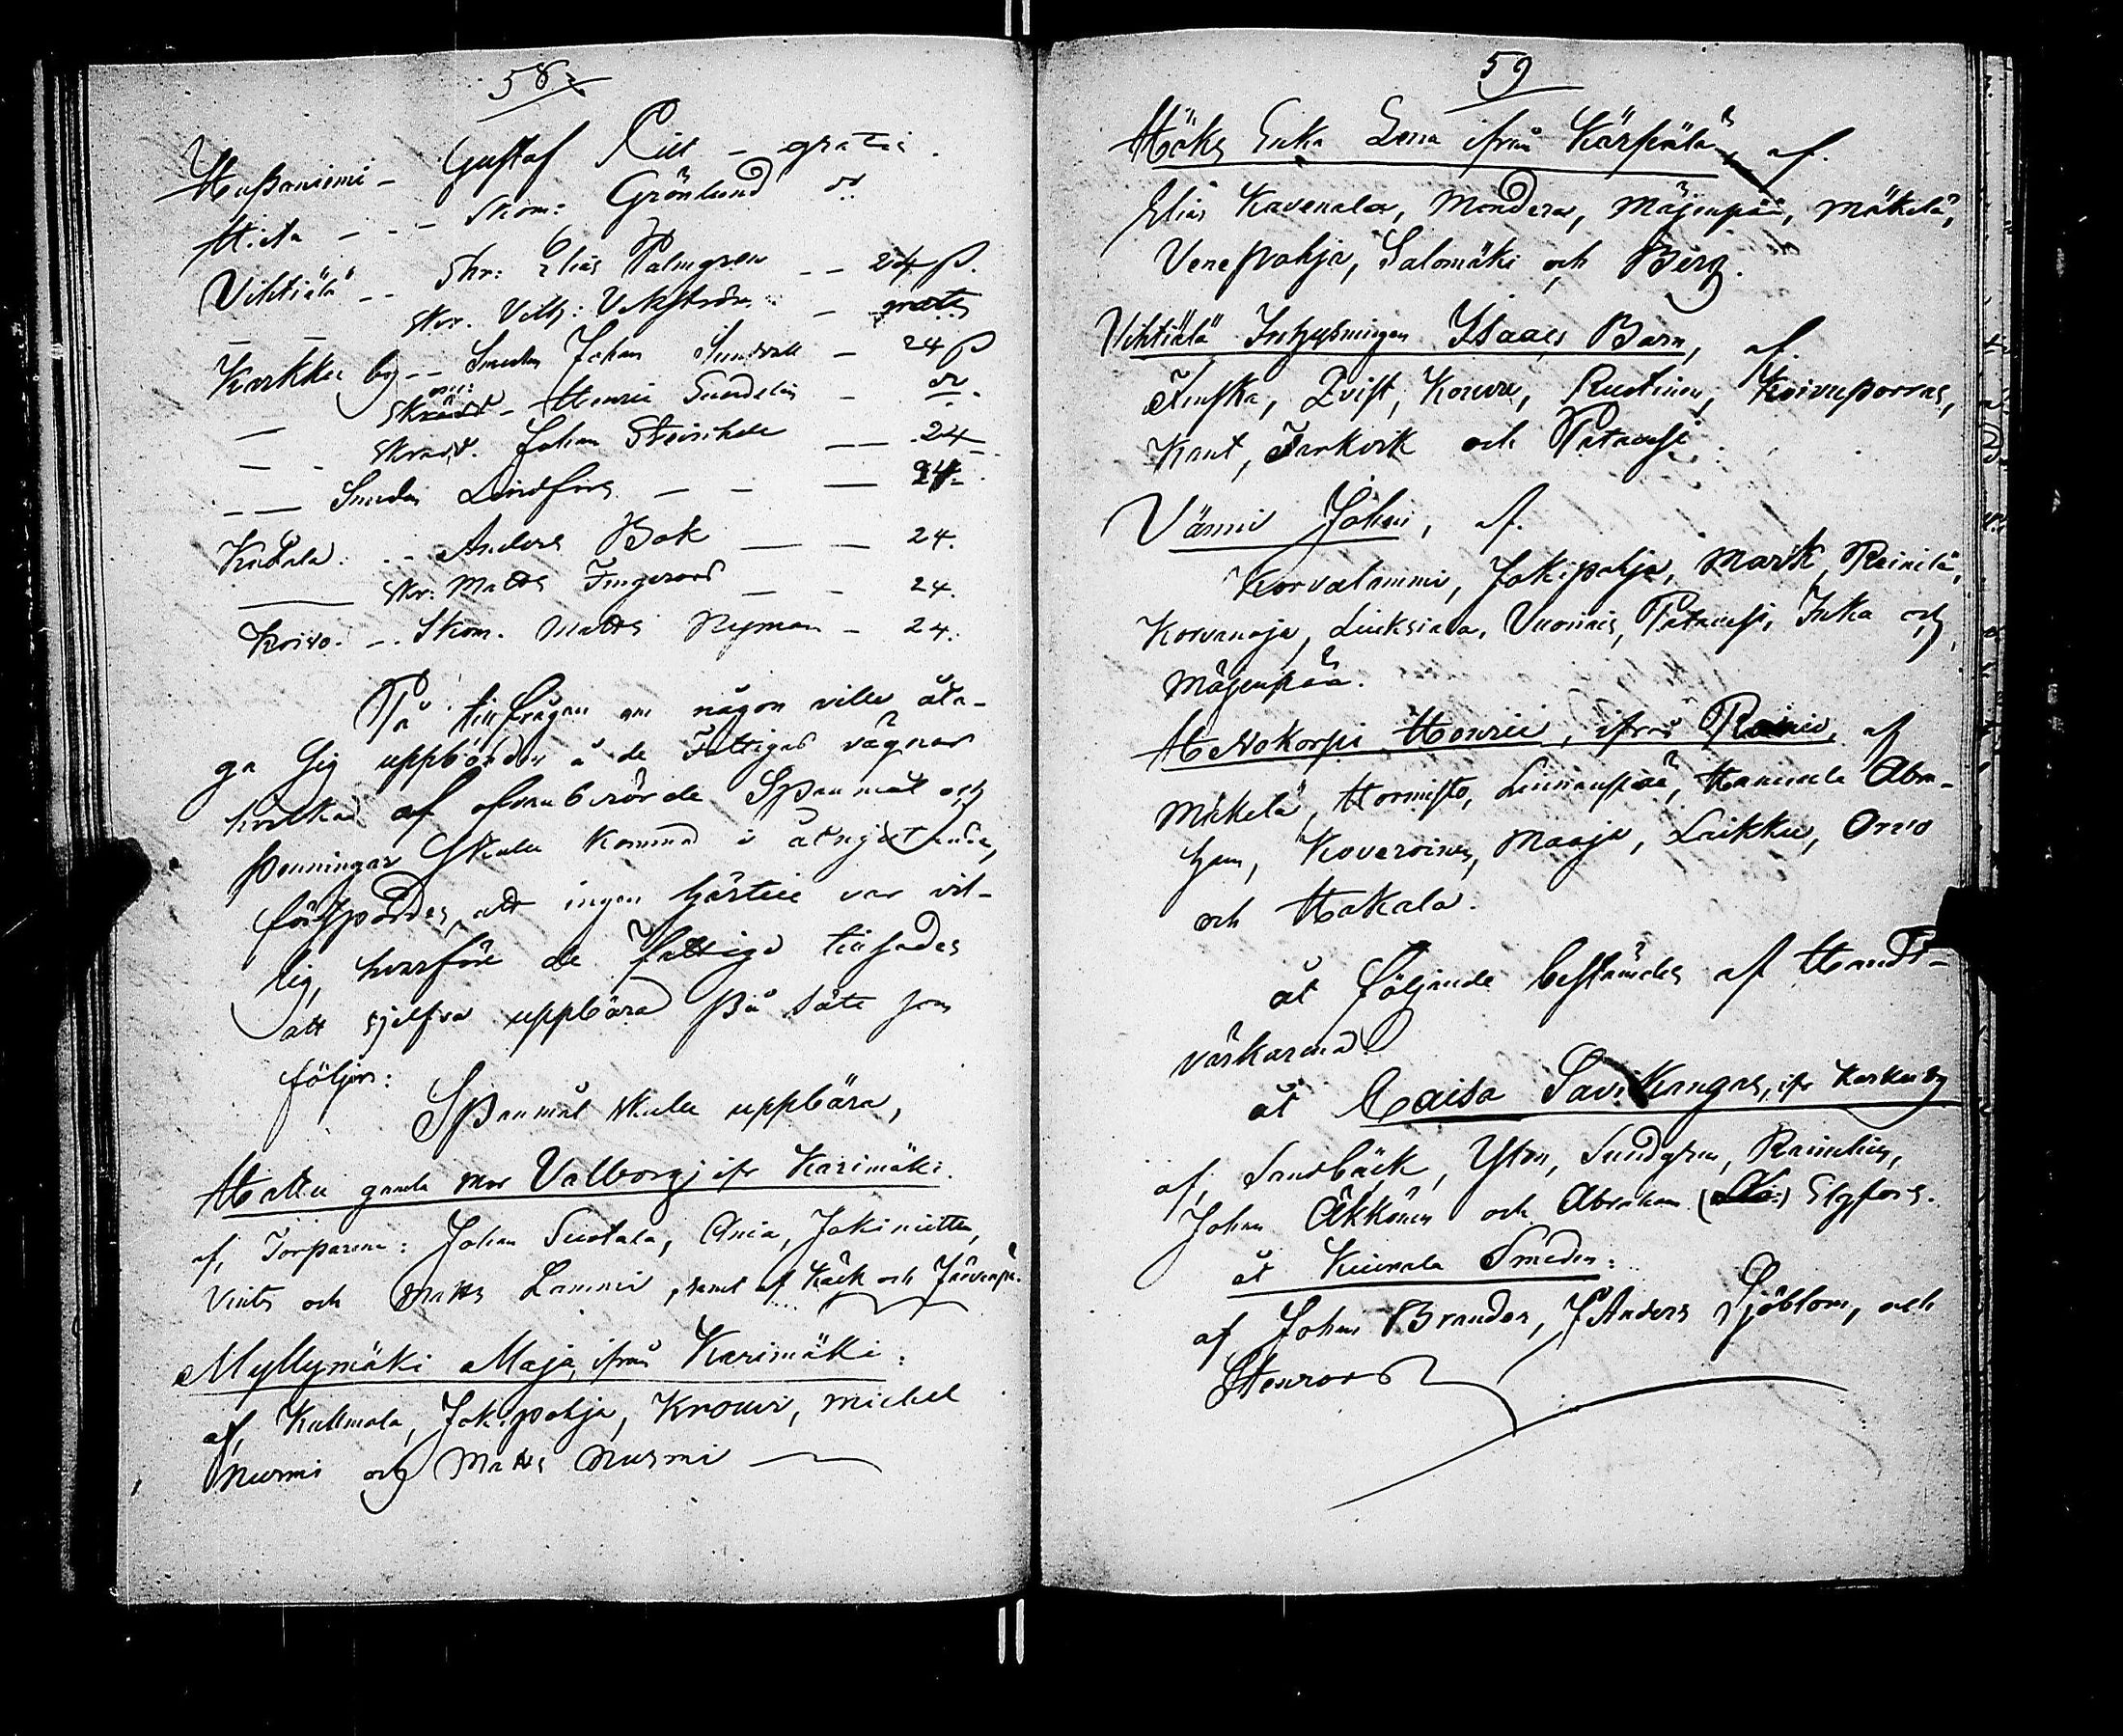 58
Hußaniemi - Gustaf Lill - gratis.
Hieta - - - Skom: Grönlund do
Vihtiälä - - Skr: Elias Palmgren - - 24 ß.
Skr. Vilh: Vikström - gratis
Karkku by - - Smeden Johan Sundvall - 24 ß
— Skrädd - Henric Sundelin - do.
— - Skrädd. Johan — — 24
- — Smeden Lindfors — - — 24.
Kutala: - - Anders Bok — — 24.
— Skr: Matts Fingerroos — - 24.
Koivo. - - Skom. Matts Nyman - 24.
På tillfrågan om någon ville åta-
ga sig uppbörden å de Fattigas vägnar
hvilka af ofvanberörde Spanmål och
penningar skulle komma i åtnjutande,
försportes, att ingen härtill var vil-
lig, hvarföre de fattige tillsades
att sjelfva uppbära på sätt som
följer:
Spanmål skulle uppbära,
Hattu gamla mor Valborg ifr Karimäki.
af, Torparne: Johan Suotala, Ania, Jokiniitty,
Vints och Matts Lammi, samt af Käck och Järvenpä.
Myllymäki Maja, ifrån Karimäki:
af, Kullmala, Jokipohja, Krouvi, Michel
Nurmi och Matts Nurmi —
59
Höks Enka Lena ifrån Kärpälä, af.
Elias Kavenala, Mondera, Mäjenpää, Mäkelä,
Venepohja, Salomäki och Berg.
Vihtiälä Inhysningen Isaacs Barn, af.
Tuiska, Qvist, Kouvu, Rustinen, Koivuporras,
Kant, Jarkvik och Patamsi.
Vänni Johan, af.
Korvalammi, Jokipohja, Mark, Rainila,
Korvanoja, Liuksiala, Vuorinen, Patamsi, Inka och,
Mäjenpää.
Metsokorpi Henric, ifrån Rainio, af
Mäkelä, Hormisto, Linnanpää, Hannula Abra-
ham, Koveroinen, Maaja, Laikku, Orvo
och Hakala.
åt följande bestämdes af Handt-
värkarena
åt Caisa Savikangas, ifr Karku by
af, Sandbäck, Ylén, Sundgren, Rainelius,
Johan Äkkönen och Abraham Elgfors.
åt Kiimala Smeden:
af Johan Brander, Anders Sjöblom, och
Stenroos